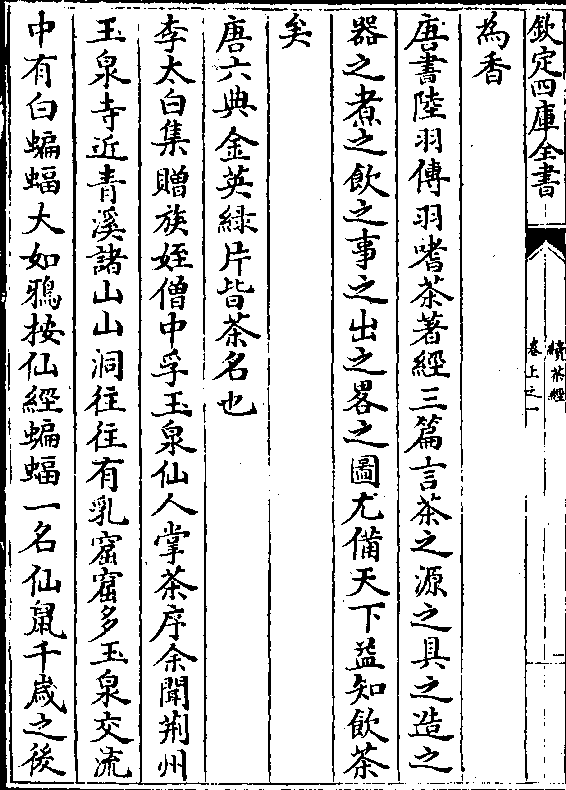 欽定四庫全書
續茶經
卷上之一
為香
唐書陸羽傳羽嗜茶著經三篇言茶之源之具之造之
器之煮之飲之事之出之畧之圖尤備天下益知飲茶
矣
唐六典金英緑片皆茶名也
李太白集贈族姪僧中孚玉泉仙人掌茶序余聞荆州
玉泉寺近青溪諸山山洞往往有乳窟窟多玉泉交流
中有白蝙蝠大如鴉按仙經蝙蝠一名仙鼠千歲之後